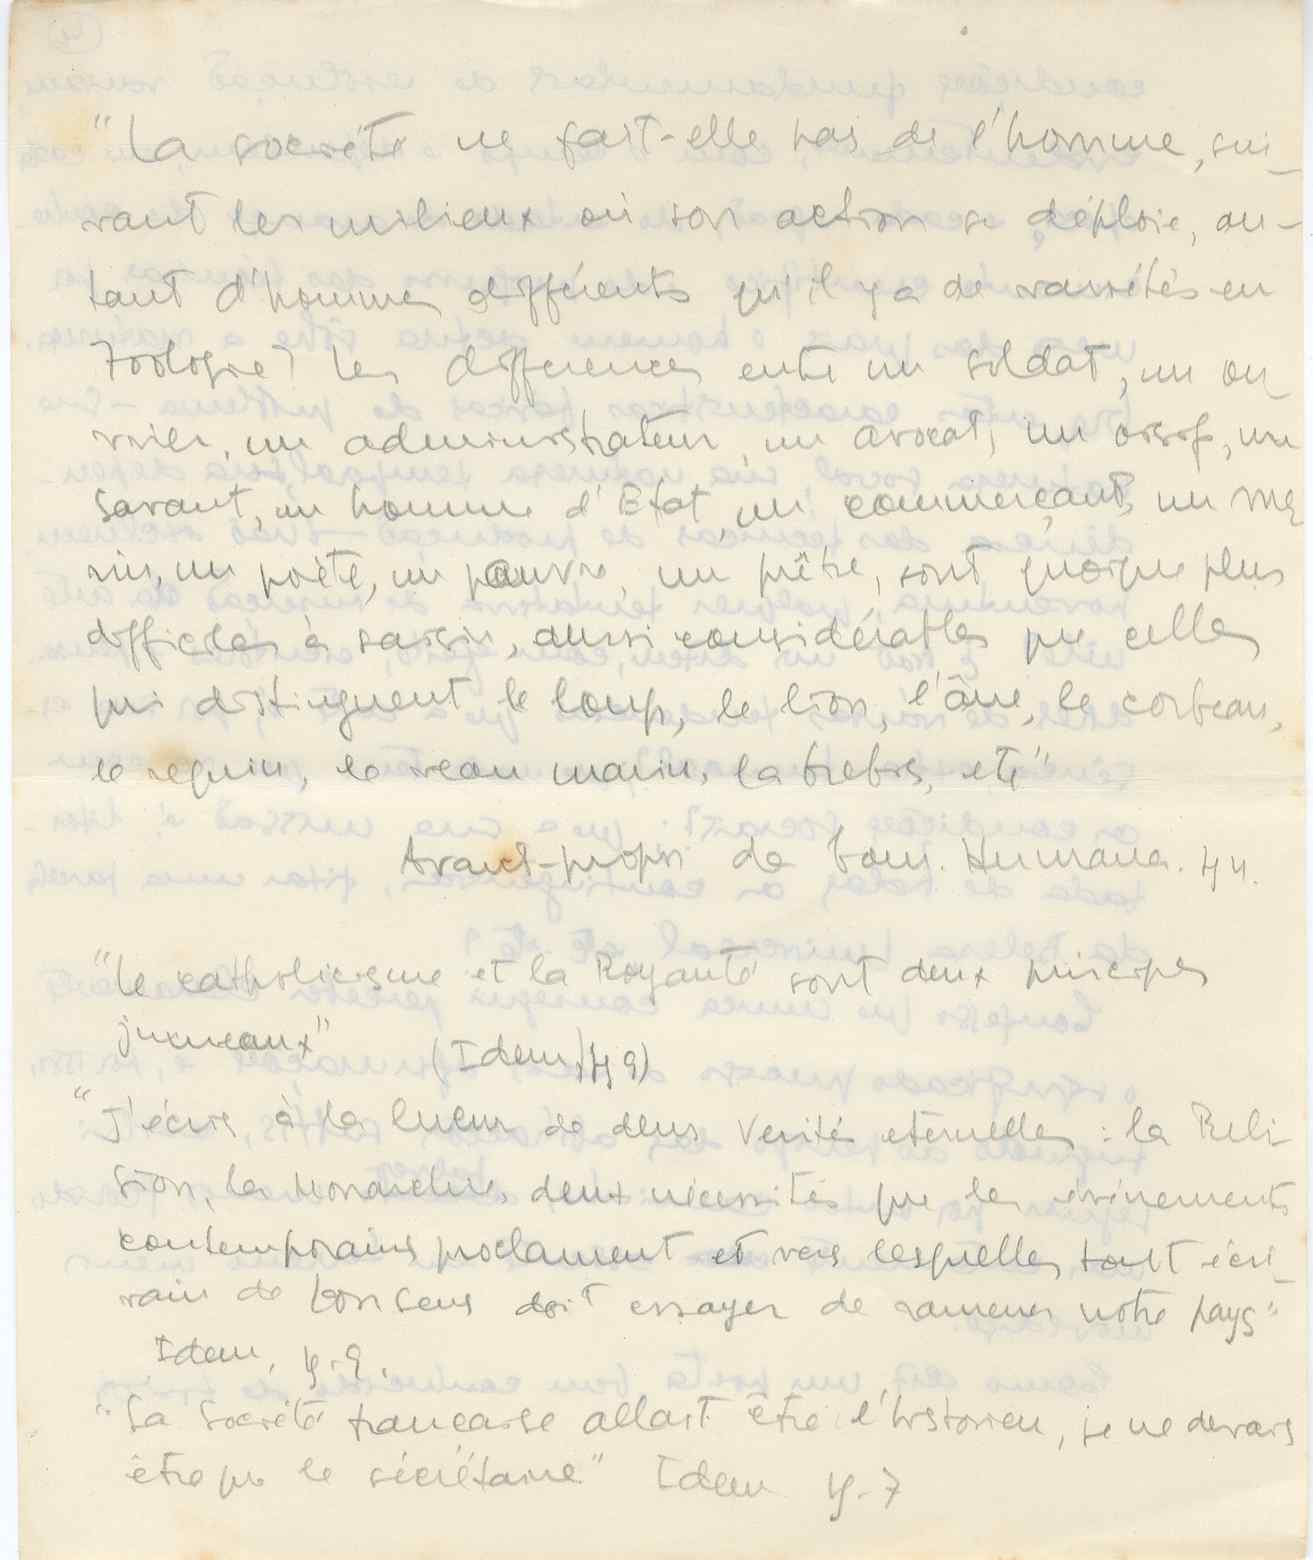 "La société ne fait-elle pas de l'homme, sui-
vant les milieux où son action se déploie, au-
tant d'hommes différents qu'il y a de variétés en
Zoologie? Les differences entre un soldat, un ou
vrier, un administrateur, un avocat, un oisif, un
savant, un homme d'Etat, un commerçant, un ma
rin, un poète, un pauvre, un prêtre, sont quoique plus
difficiles à saisir, aussi considérables que celles
qui distinguent le loup, le lion, l'âne, le corbeau,
le requin, le veau marin, la brebis, etc"
Avant-propos de Com. Humana. p 4.
"Le catholicisme et la Royauté sont deux principes
jumeaux" (Idem, p 9)
"J'écris à la lueur de deux Verités eternelles: la Reli-
gion, la Monarchie, deux nécessités que les évènements
contemporains proclament et vers lesquelles tout écri-
vain de bon sens doit essayer de ramener notre pays"
Idem, p. 9.
"La Société française allait être l'historien, je ne devais
être que le sécrétaire" Idem p. 7